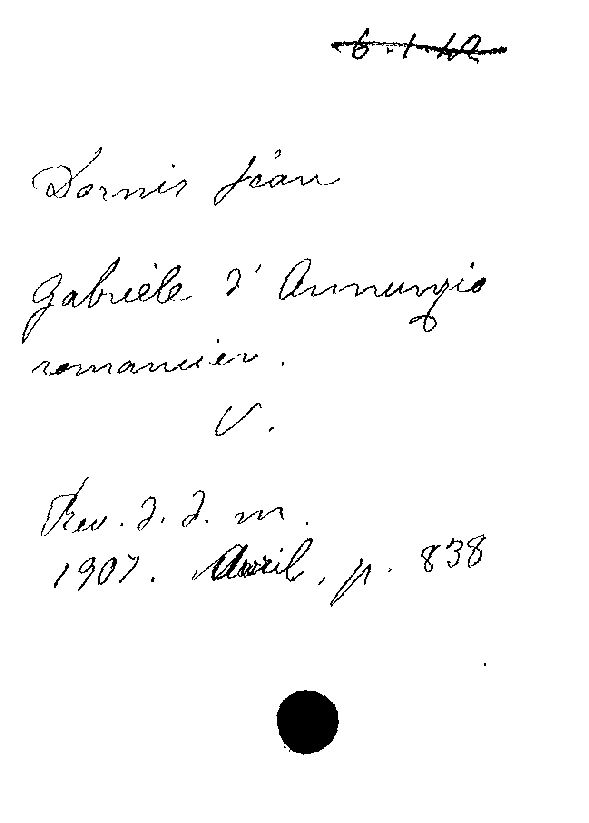 6.1.42
Dornis Jean
Gabriele d'Annunzio
romancier.
V.
Rev. d. d. m.
1907. Avril, p. 838